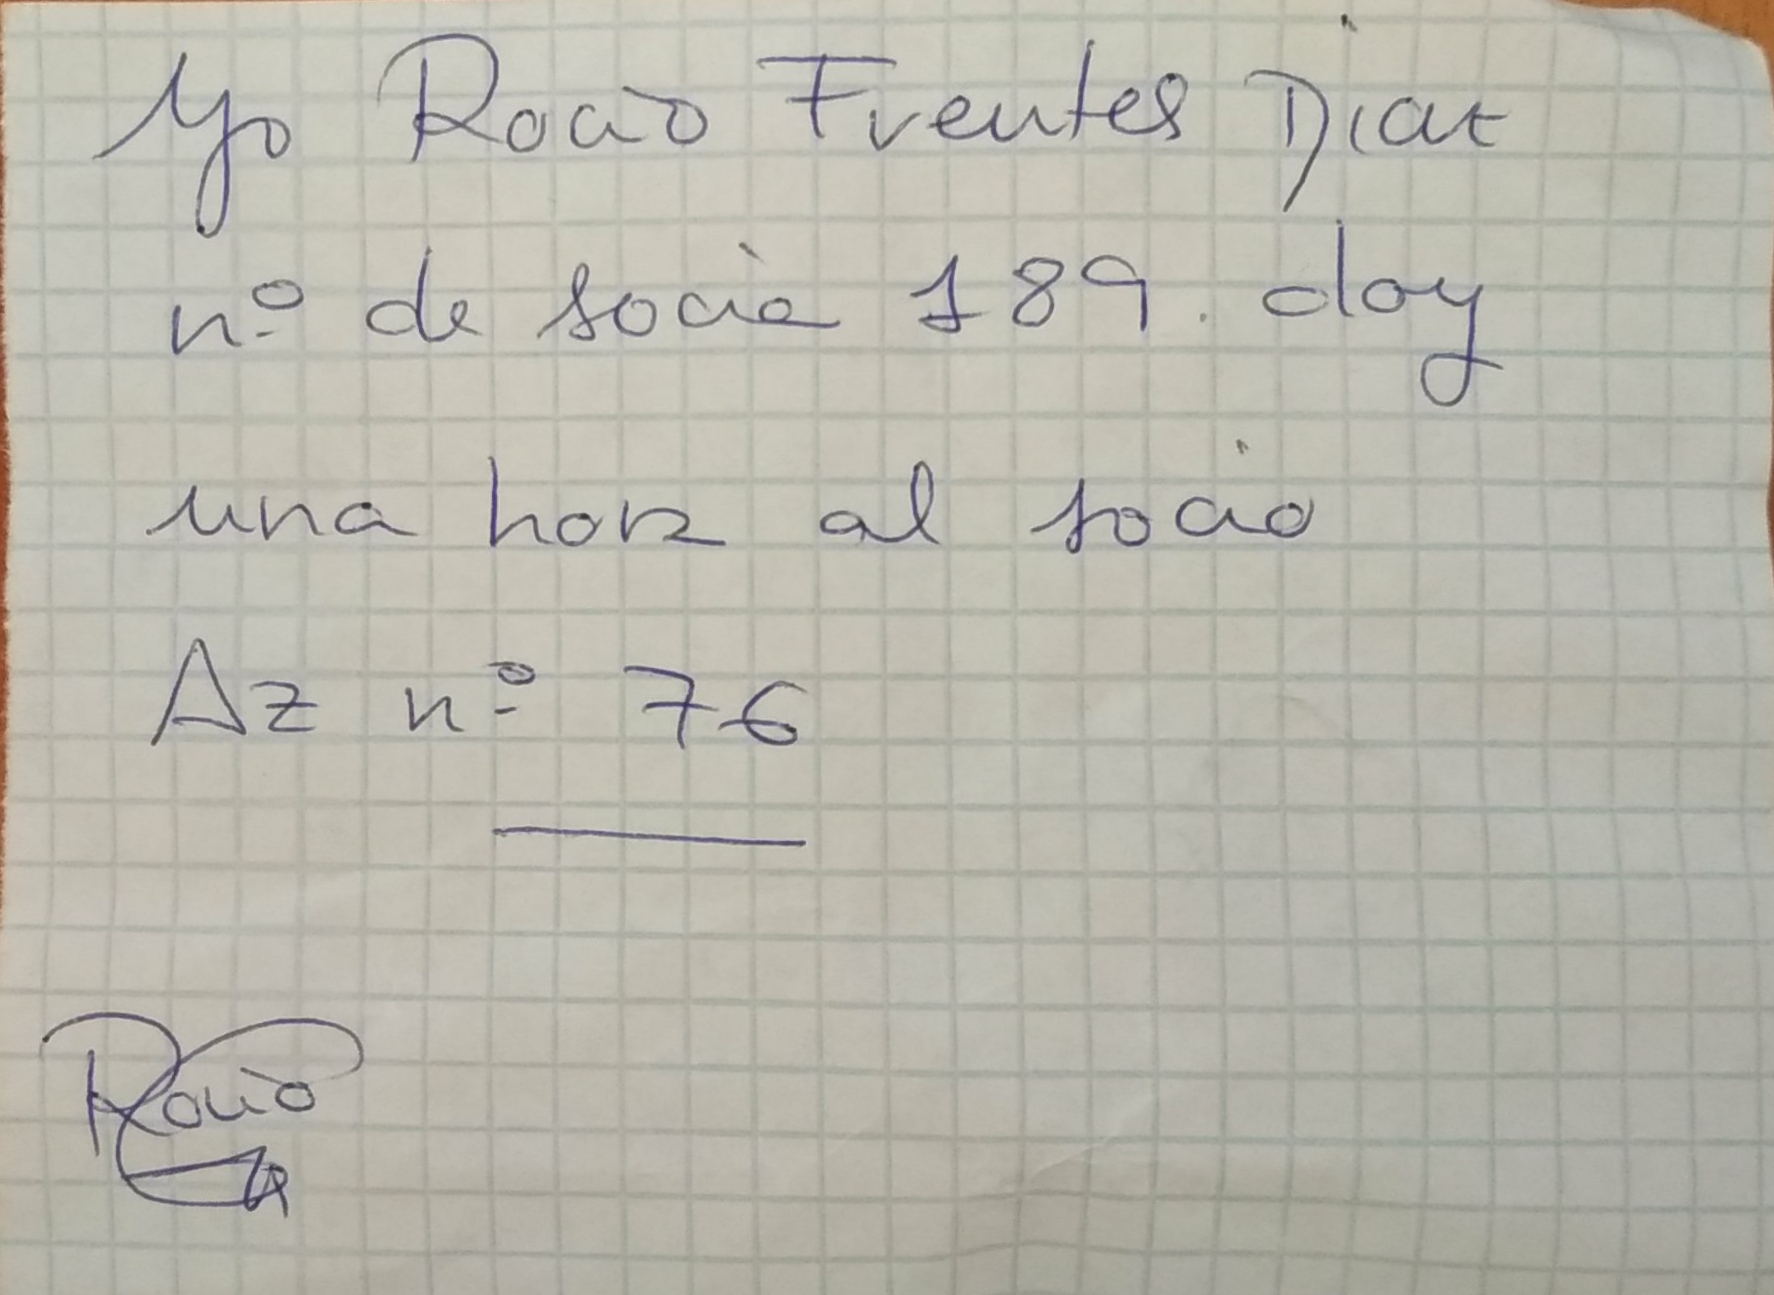 Yo Rocío Fuentes Díaz
nº de socia 189. doy
una hora al socio
Az nº 76
Rocío